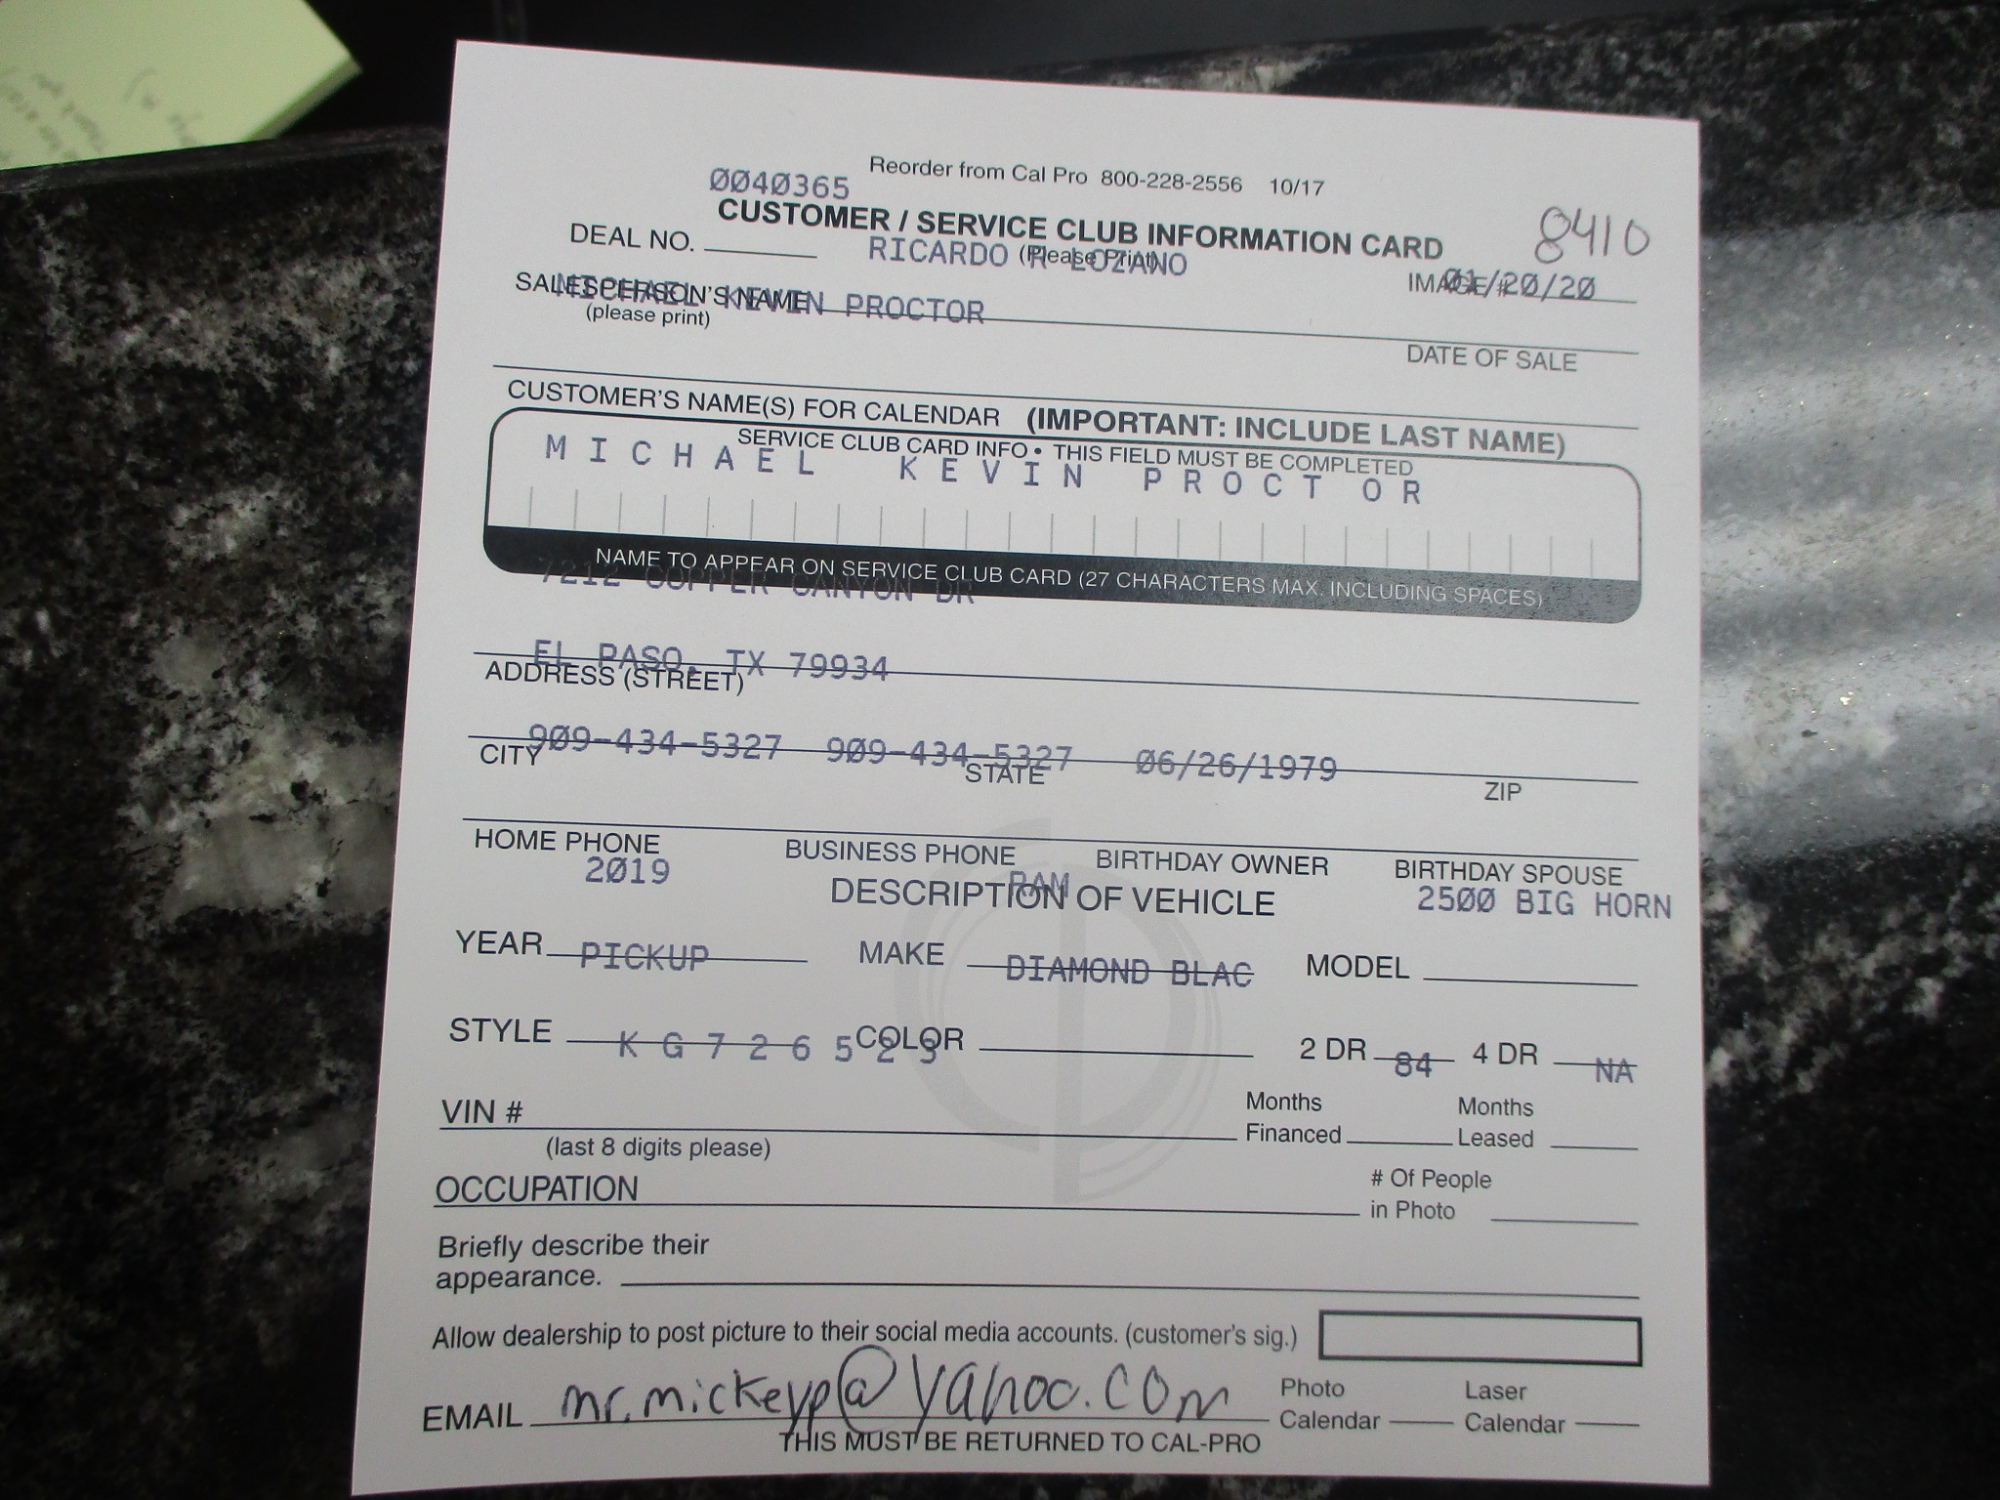 Reorder from Cal Pro 800-228-2556 10/17
0040365
CUSTOMER / SERVICE CLUB INFORMATION CARD
8410
DEAL NO.
RICARDO R LOZANO
(Please Print)
IMAGE #
01/20/20
SALESPERSON'S NAME
MICHAEL KEVIN PROCTOR
(please print)
DATE OF SALE
CUSTOMER'S NAME(S) FOR CALENDAR (IMPORTANT: INCLUDE LAST NAME)
SERVICE CLUB CARD INFO • THIS FIELD MUST BE COMPLETED
MICHAEL KEVIN PROCTOR
NAME TO APPEAR ON SERVICE CLUB CARD (27 CHARACTERS MAX. INCLUDING SPACES)
7212 COPPER CANYON DR
EL PASO, TX 79934
ADDRESS (STREET)
909-434-5327 909-434-5327 06/26/1979
CITY STATE ZIP
HOME PHONE BUSINESS PHONE BIRTHDAY OWNER BIRTHDAY SPOUSE
2019 RAM 2500 BIG HORN
DESCRIPTION OF VEHICLE
YEAR PICKUP MAKE DIAMOND BLAC MODEL
STYLE KG726523 COLOR 2 DR 84 4 DR NA
VIN # Months Financed Months Leased
(last 8 digits please)
OCCUPATION # Of People in Photo
Briefly describe their
appearance.
Allow dealership to post picture to their social media accounts. (customer's sig.)
EMAIL mr.mickeyp@yahoo.com Photo Calendar Laser Calendar
THIS MUST BE RETURNED TO CAL-PRO